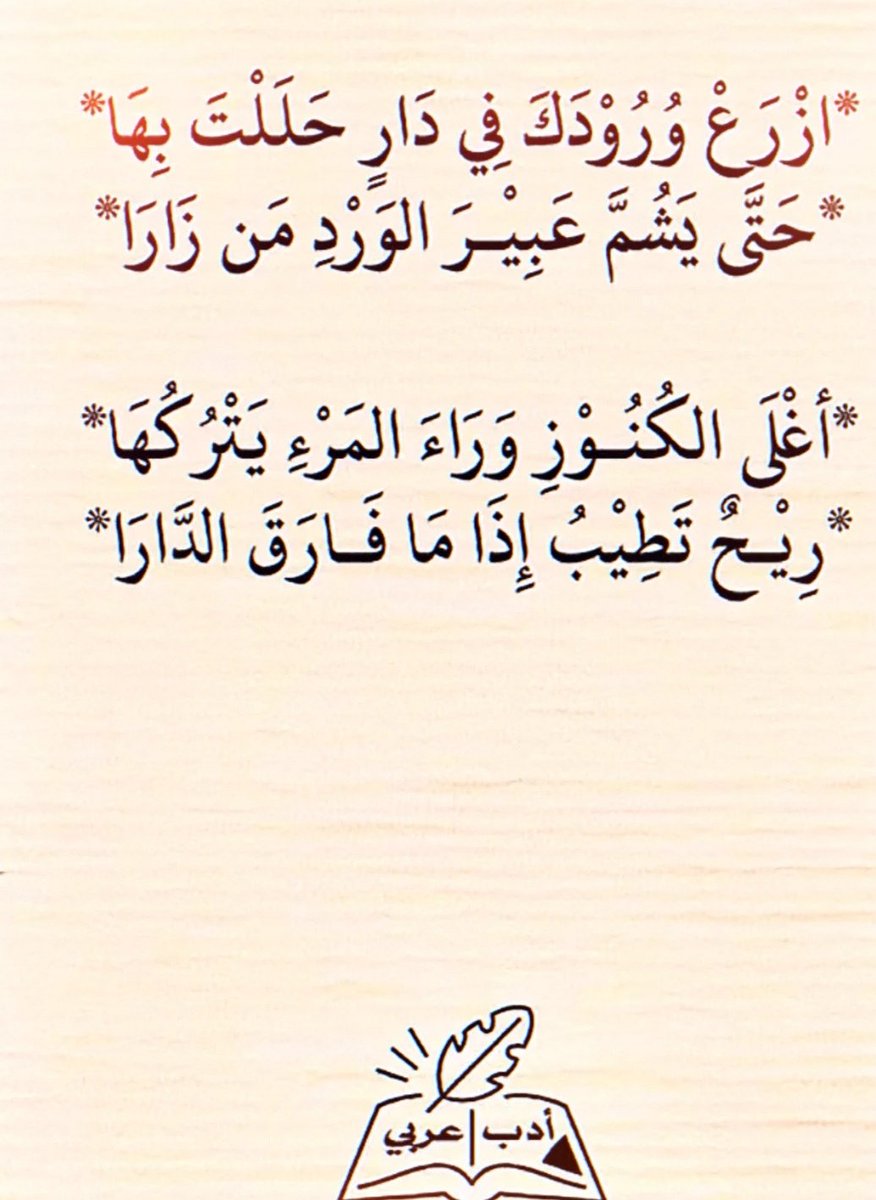 *ازْرَعْ وُرُوْدَكَ فِي دَارٍ حَلَلْتَ بِهَا*
*حَتَّى يَشُمَّ عَبِيْـرَ الوَرْدِ مَن زَارَا*
*أغْلَى الكُنُـوْزِ وَرَاءَ المَرْءِ يَتْرُكُهَا*
*رِيْـحٌ تَطِيْبُ إِذَا مَا فَـارَقَ الدَّارَا*
أدب|عربي